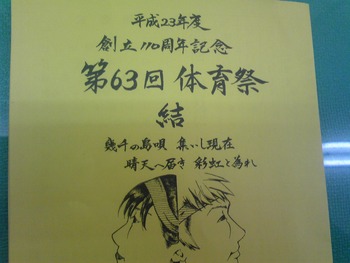 平成23年度
創立110周年記念
第63回 体育祭
結
幾千の鳥唄 集いし現在
晴天へ届き 彩虹と為れ